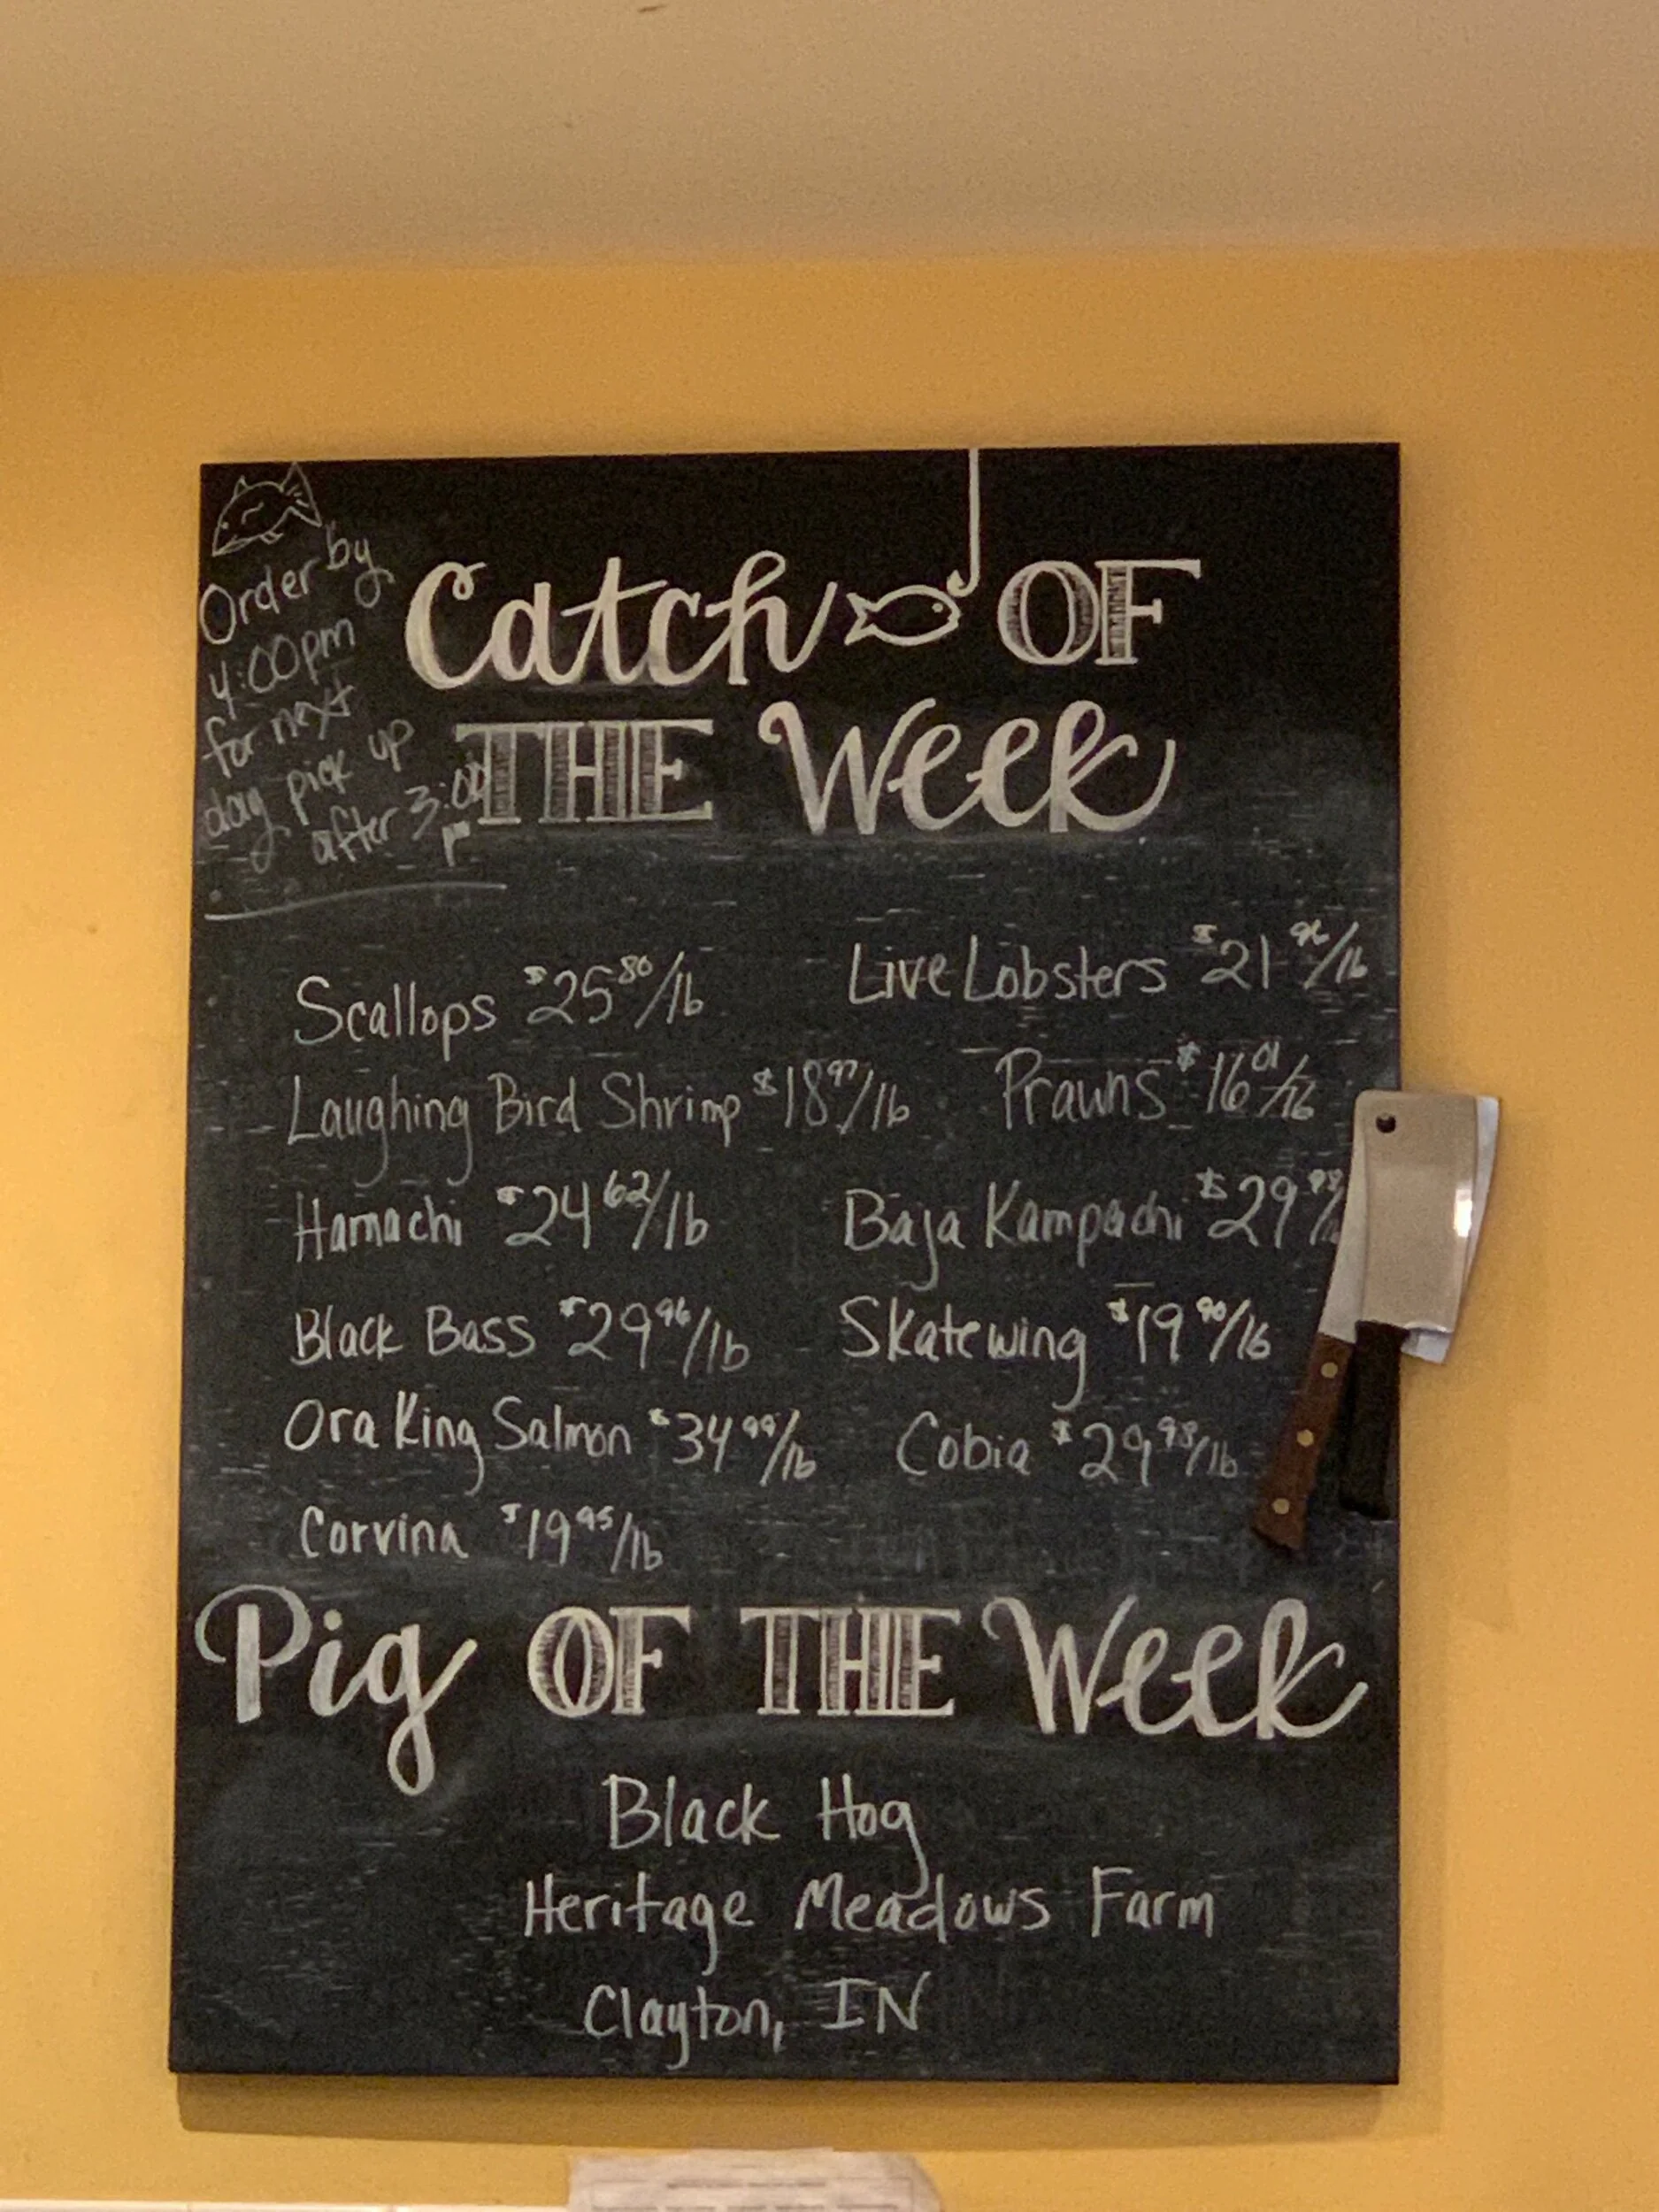 Order by
4:00pm
for next
day pick up
after 3:00
Catch OF
THE Week
Scallops $25.80/lb
Live Lobsters $21.96/lb
Laughing Bird Shrimp $18.97/lb
Prawns $16.01/lb
Hamachi $24.62/lb
Baja Kampachi $29.98/
Black Bass $29.96/lb
Skate wing $19.90/lb
Ora King Salmon $34.99/lb
Cobia $29.98/lb
Corvina $19.95/lb
Pig OF THE Week
Black Hog
Heritage Meadows Farm
Clayton, IN